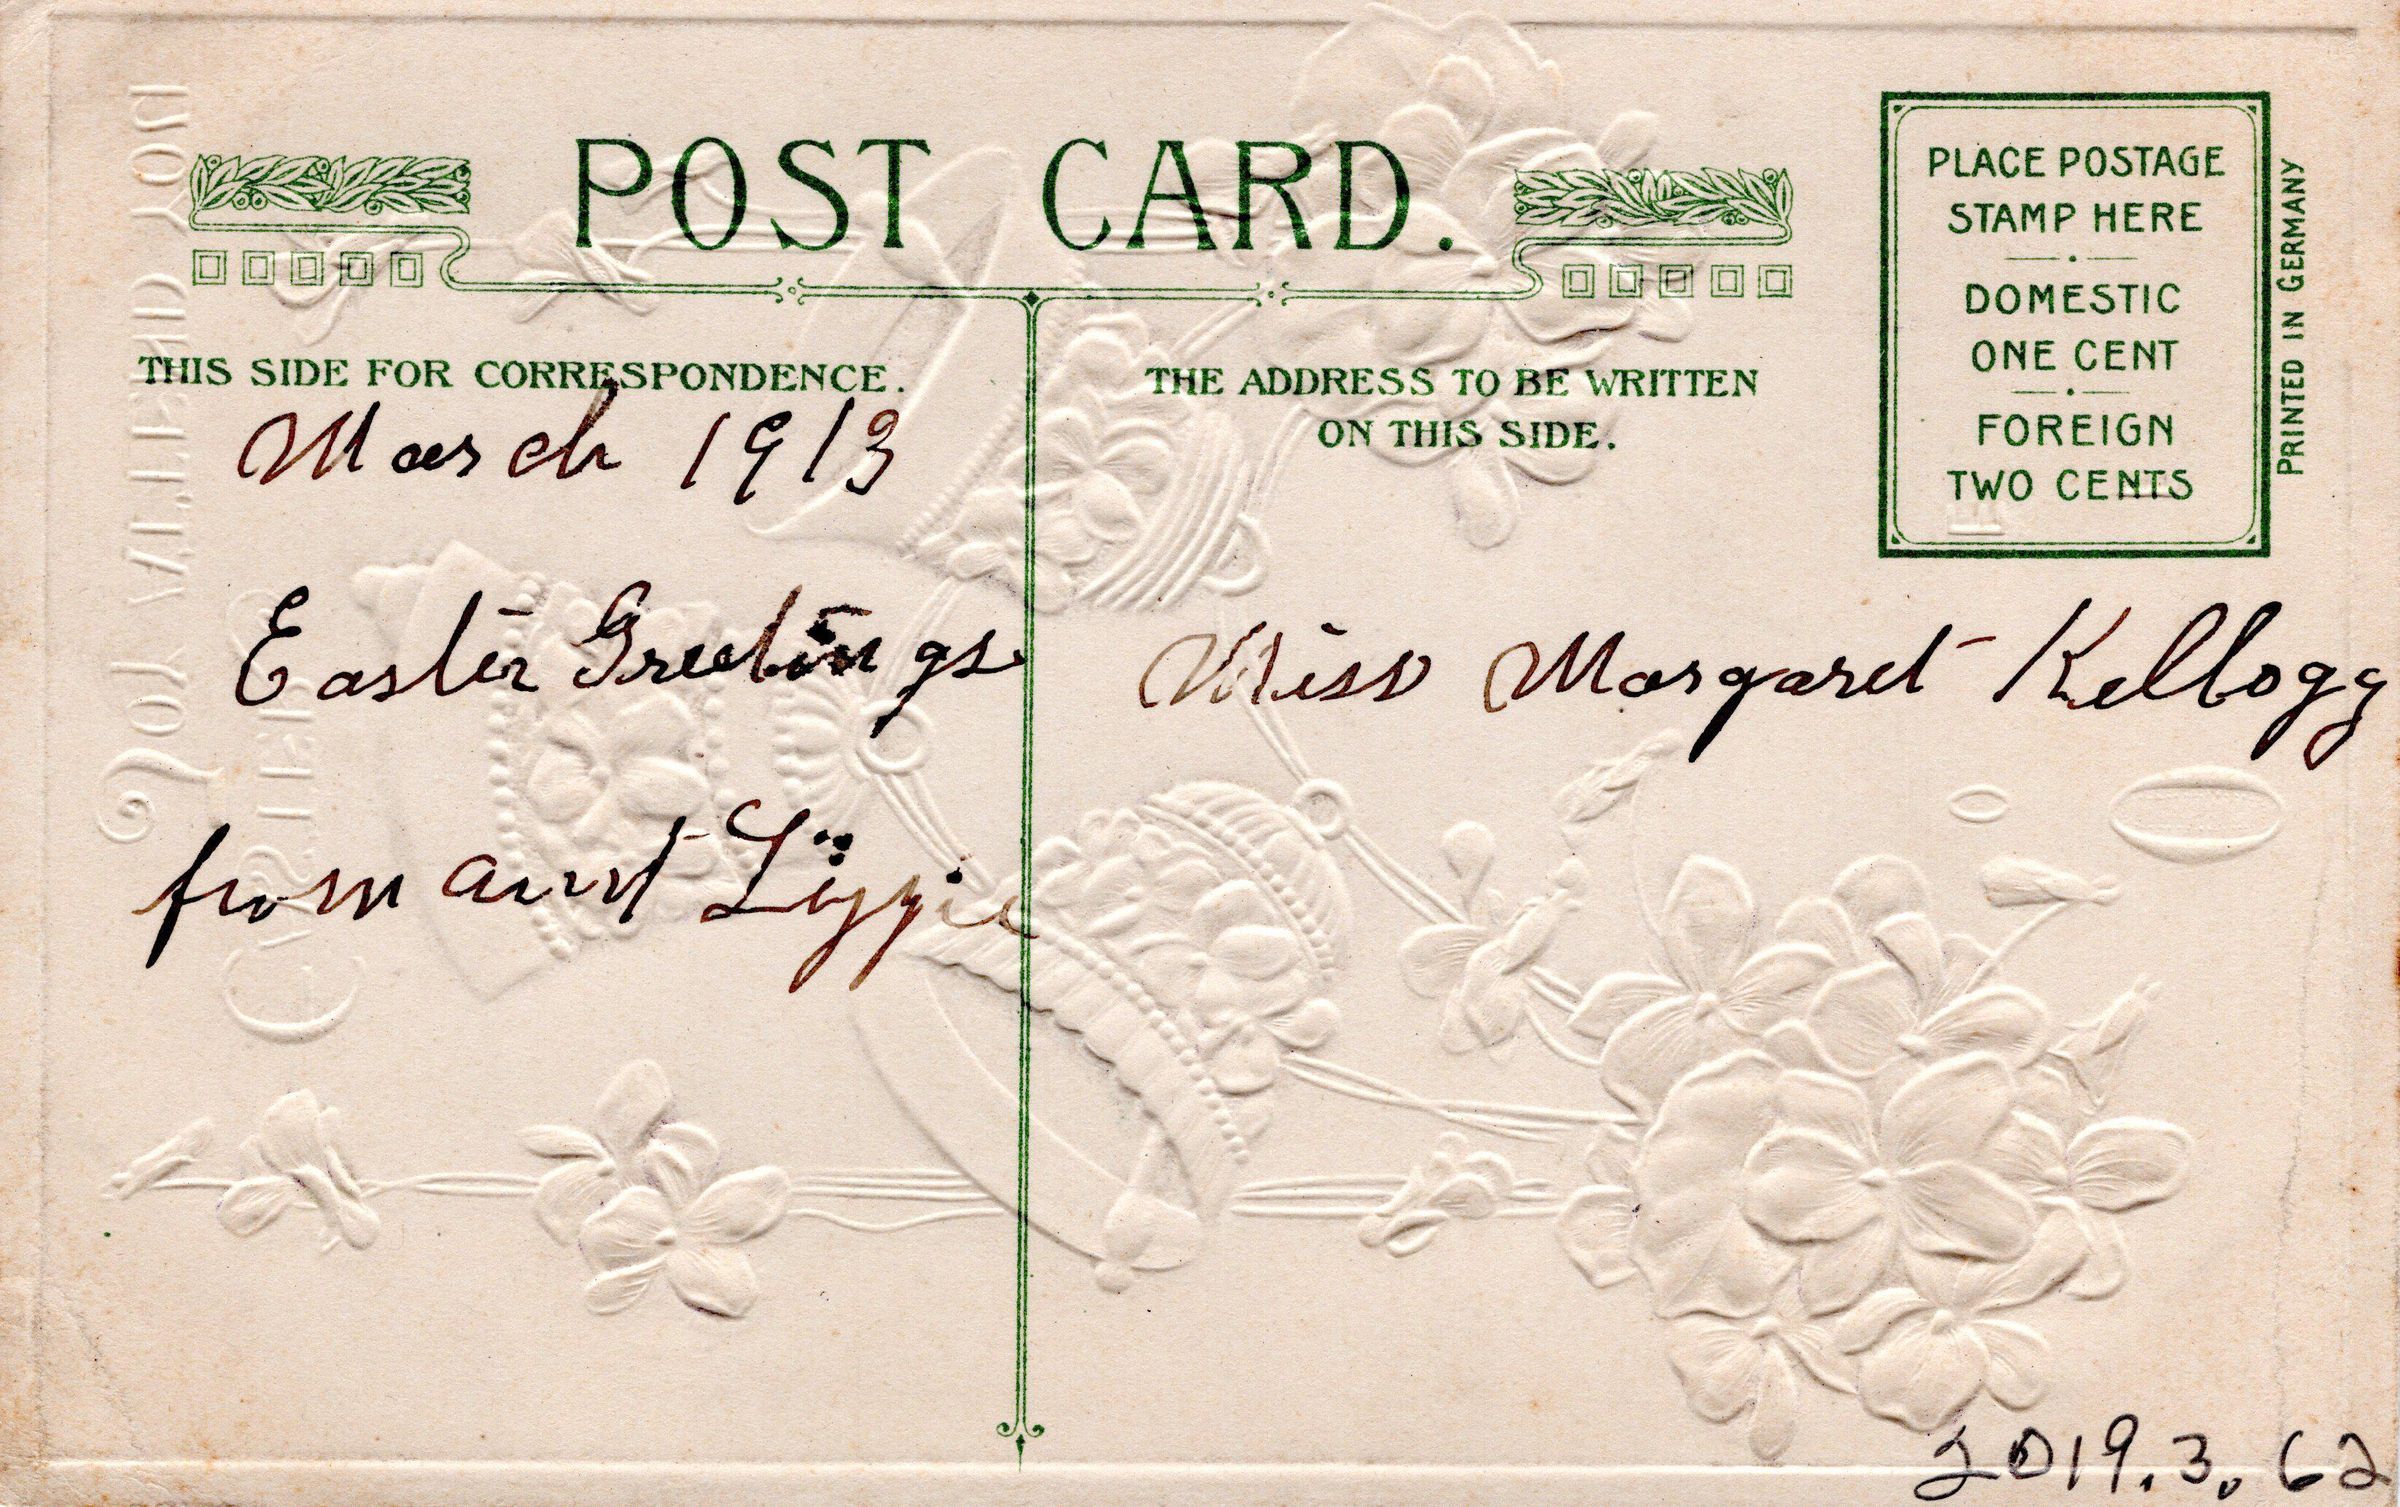 POST CARD.
THIS SIDE FOR CORRESPONDENCE.
March 1913
Easter Greetings
from aunt Lizzie
THE ADDRESS TO BE WRITTEN
ON THIS SIDE.
Miss Margaret Kellogg
PLACE POSTAGE
STAMP HERE
DOMESTIC
ONE CENT
FOREIGN
TWO CENTS
PRINTED IN GERMANY
2019.3.62